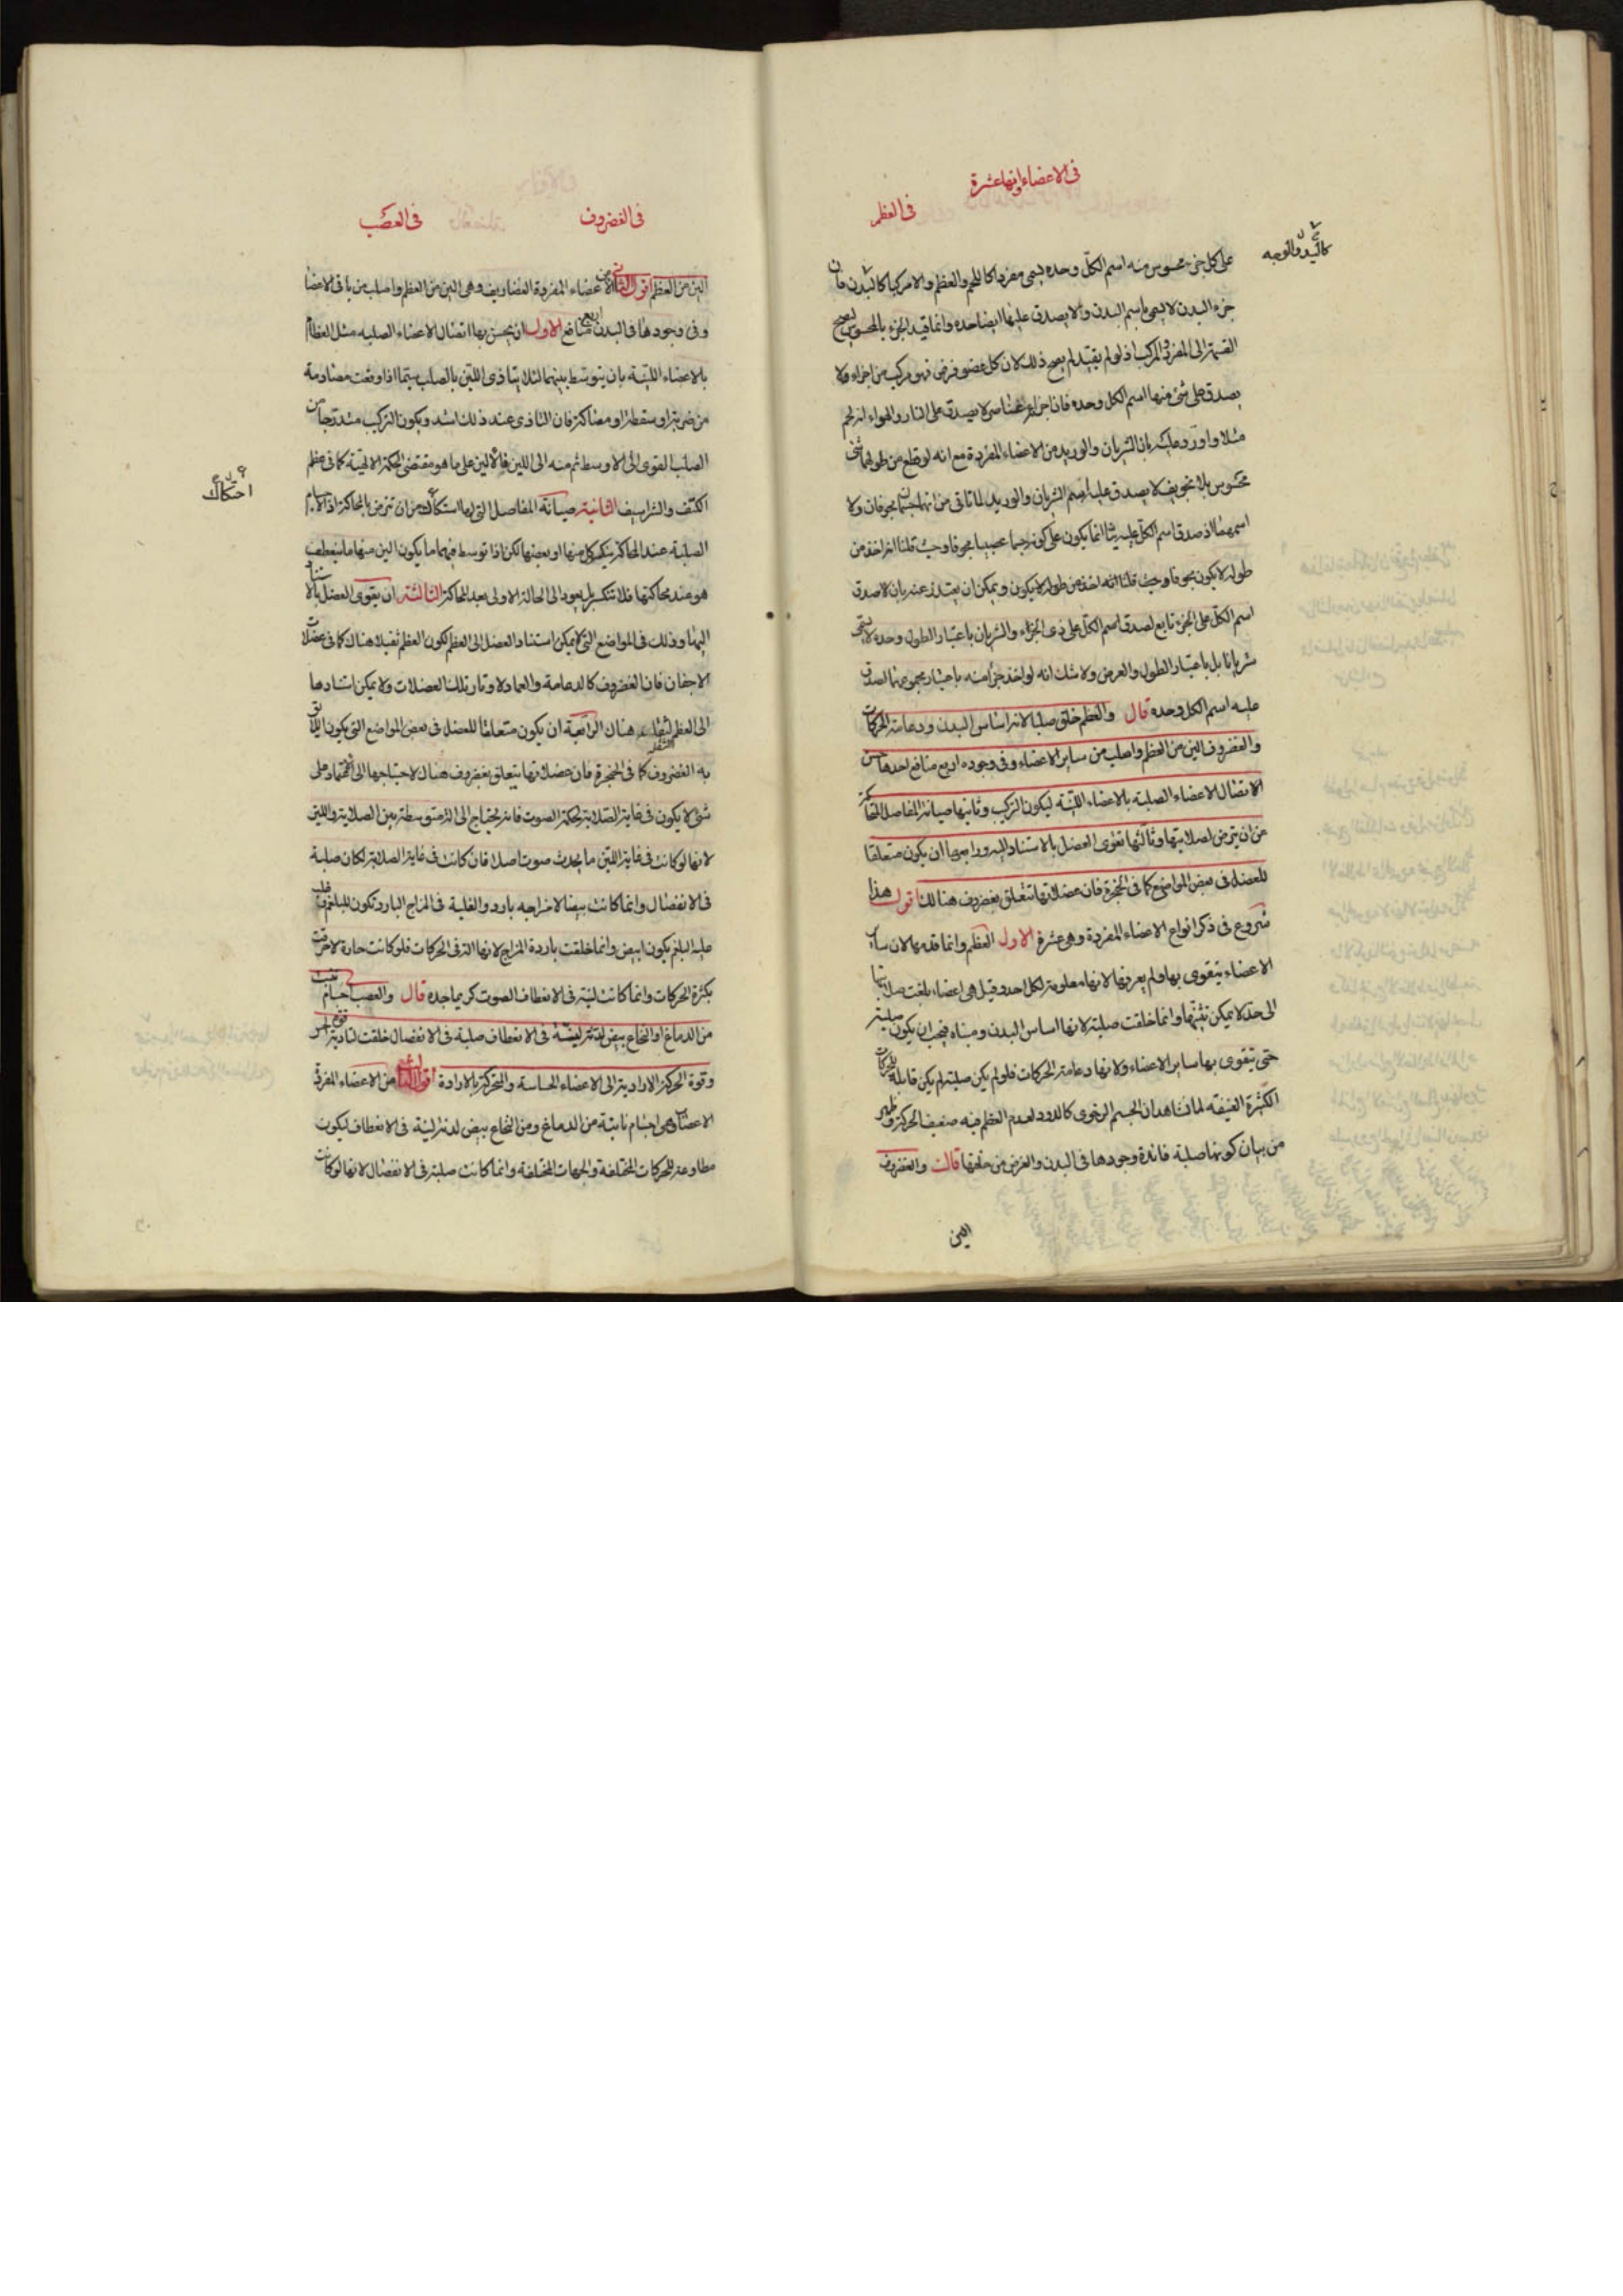 فى الاعضاء وانها عشرة
فى العظم
كاليد والوجه
على كل جزء محسوس منه اسم الكل وحده يسمى مفردا كاللحم والعظم والا مركبا كالبدن فان
جزء البدن لا يسمى باسم البدن ولا يصدق عليها ايضا حده وانما قيد الجزء بالمحسوس ليصح
القسمة الى المفرد والمركب اذ لو لم يقيد لم يصح ذلك لان كل عضو فرض فهو مركب من اجزاء ولا
يصدق على شئ منها اسم الكل وحده فان اجزاءه عناصر لا يصدق على النار والهواء انه لحم
مثلا واورد عليه بان الشريان والوريد من الاعضاء المفردة مع انه لو قطع من طولهما شئ
محسوس بلا تجويف لا يصدق عليه اسم الشريان والوريد لما تاتى من انهما جسمان مجوفان ولا
اسمهما اذ صدق اسم الكل عليه انما يكون على كونه جسما عصبيا مجوفا وحيث قلنا انه اخذ من
طوله لا يكون مجوفا وحيث قلنا انه اخذ من طوله لا يكون ويمكن ان يعتذر عنه بان لا صدق
اسم الكل على الجزء تابع لصدق اسم الكل على ذى الجزاء والشريان باعتبار الطول وحده لا يسمى
شريانا بل باعتبار الطول والعرض ولا شك انه لو اخذ جزأ منه باعتبار مجموعهما لصدق
عليه اسم الكل وحده قال والعظم خلق صلبا لانه اساس البدن ودعامة الحركات
والغضروف الين من العظم واصلب من ساير الاعضاء وفى وجوده اربع منافع احدها حسن
الاتصال الاعضاء الصلبة بالاعضاء اللينة ليكون التركيب وثانيها صيانة المفاصل المتحاكة
من ان يترض لصلابتها وثالثها تقوى العضل بالاستناد اليه ورابعها ان يكون متعلقا
للعضل فى بعض المواضع كما فى الحنجرة فان عضلاتها تتعلق بغضروف هنالك اقول هذا
شروع فى ذكر انواع الاعضاء المفردة وهى عشرة الاول العظم وانما قدمها لان ساير
الاعضاء يتقوى بها ولم يعرفها لانها معلومة لكل احد وقيل هى اعضاء بلغت صلابتها
الى حد لا يمكن تثنيها وانما خلقت صلبة لانها اساس البدن ومبناه فيجب ان يكون صلبة
حتى يتقوى بها ساير الاعضاء ولانها دعامة الحركات فلو لم يكن صلبة لم يكن قابلة للحركات
الكثيرة العنيفة لما نشاهد ان الجسم الرخوى كالدود لعدم العظم فيه ضعيف الحركة وظهر
من بيان كونها صلبة فائدة وجودها فى البدن والغرض من خلقها قالت والغضروف
الين
فى الغضروف
فى العصب
الين من العظم اقول الثانى من الاعضاء المفردة الغضاريف وهى الين من العظم واصلب من باقى الاعضا
وفى وجودها فى البدن اربع منافع الاول ان يحسن بها اتصال الاعضاء الصلبه مثل العظام
بالاعضاء اللينة بان يتوسط بينهما لئلا يتاذى اللين بالصلب سيما اذا وقعت مصادمة
من ضربة او سقطة او مصاكة فان التاذى عند ذلك اشد ويكون التركيب متدرجا من
الصلب القوى الى الاوسط ثم منه الى اللين فالالين على ما هو مقتضى الحكمة الالهية كما فى عظم
الكتف والشراسيف الثانية صيانة المفاصل التى لها استكاك من ان تترض بالمحاكة اذ الاجسام
احتكاك
الصلبة عند المحاكة ينكسر كل منها او بعضها لكن اذا توسط فيهما ما يكون الين منها ما ينعطف
هو عند محاكتها فلا تنكسر بل يعود الى الحالة الاولى بعد المحاكة الثالثة ان يقوى العضل بالاستناد
اليها وذلك فى المواضع التى لا يمكن استناد العضل الى العظم لكون العظم ثقيلا هناك كما فى عضلات
الاجفان فان الغضروف كالدعامة والعماد لاوتار تلك العضلات ولا يمكن استنادها
الى العظم لثقله هناك الرابعة ان يكون متعلقا للعضل فى بعض المواضع التى يكون اللائق
به الغضروف كما فى الحنجرة فان عضلاتها يتعلق بغضروف هناك لاحتياجها الى الاعتماد على
شئ لا يكون فى غاية الصلابة لحكمة الصوت فانه يحتاج الى الة متوسطة بين الصلابة واللين
لانها لو كانت فى غاية اللين ما يحدث صوت اصلا فان كانت فى غاية الصلابة لكان صلبة
فى الانفصال وانما كانت بيضا لامزاجه بارد والغلبة فى المزاج البارد تكون للبلغم فما غلب
عليه البلغم يكون ابيض وانما خلقت باردة المزاج لانها الة فى الحركات فلو كانت حارة لاحترقت
بكثرة الحركات وانما كانت لينة فى الانعطاف الصوت كريما جده قال والعصب اجسام تنبت
من الدماغ او النخاع بيض لدنة لينة فى الانعطاف صلبة فى الانفصال خلقت لتادية قوة الحس
وقوة الحركة الارادية الى الاعضاء الحساسة والمتحركة بالارادة اقول الثالث من الاعضاء المفردة
الاعصاب وهى اجسام نابتة من الدماغ ومن النخاع بيض لدنة لينة فى الانعطاف ليكون
مطاوعة للحركات المختلفة والجهات المختلفة وانما كانت صلبة فى الانفصال لانها لو كانت